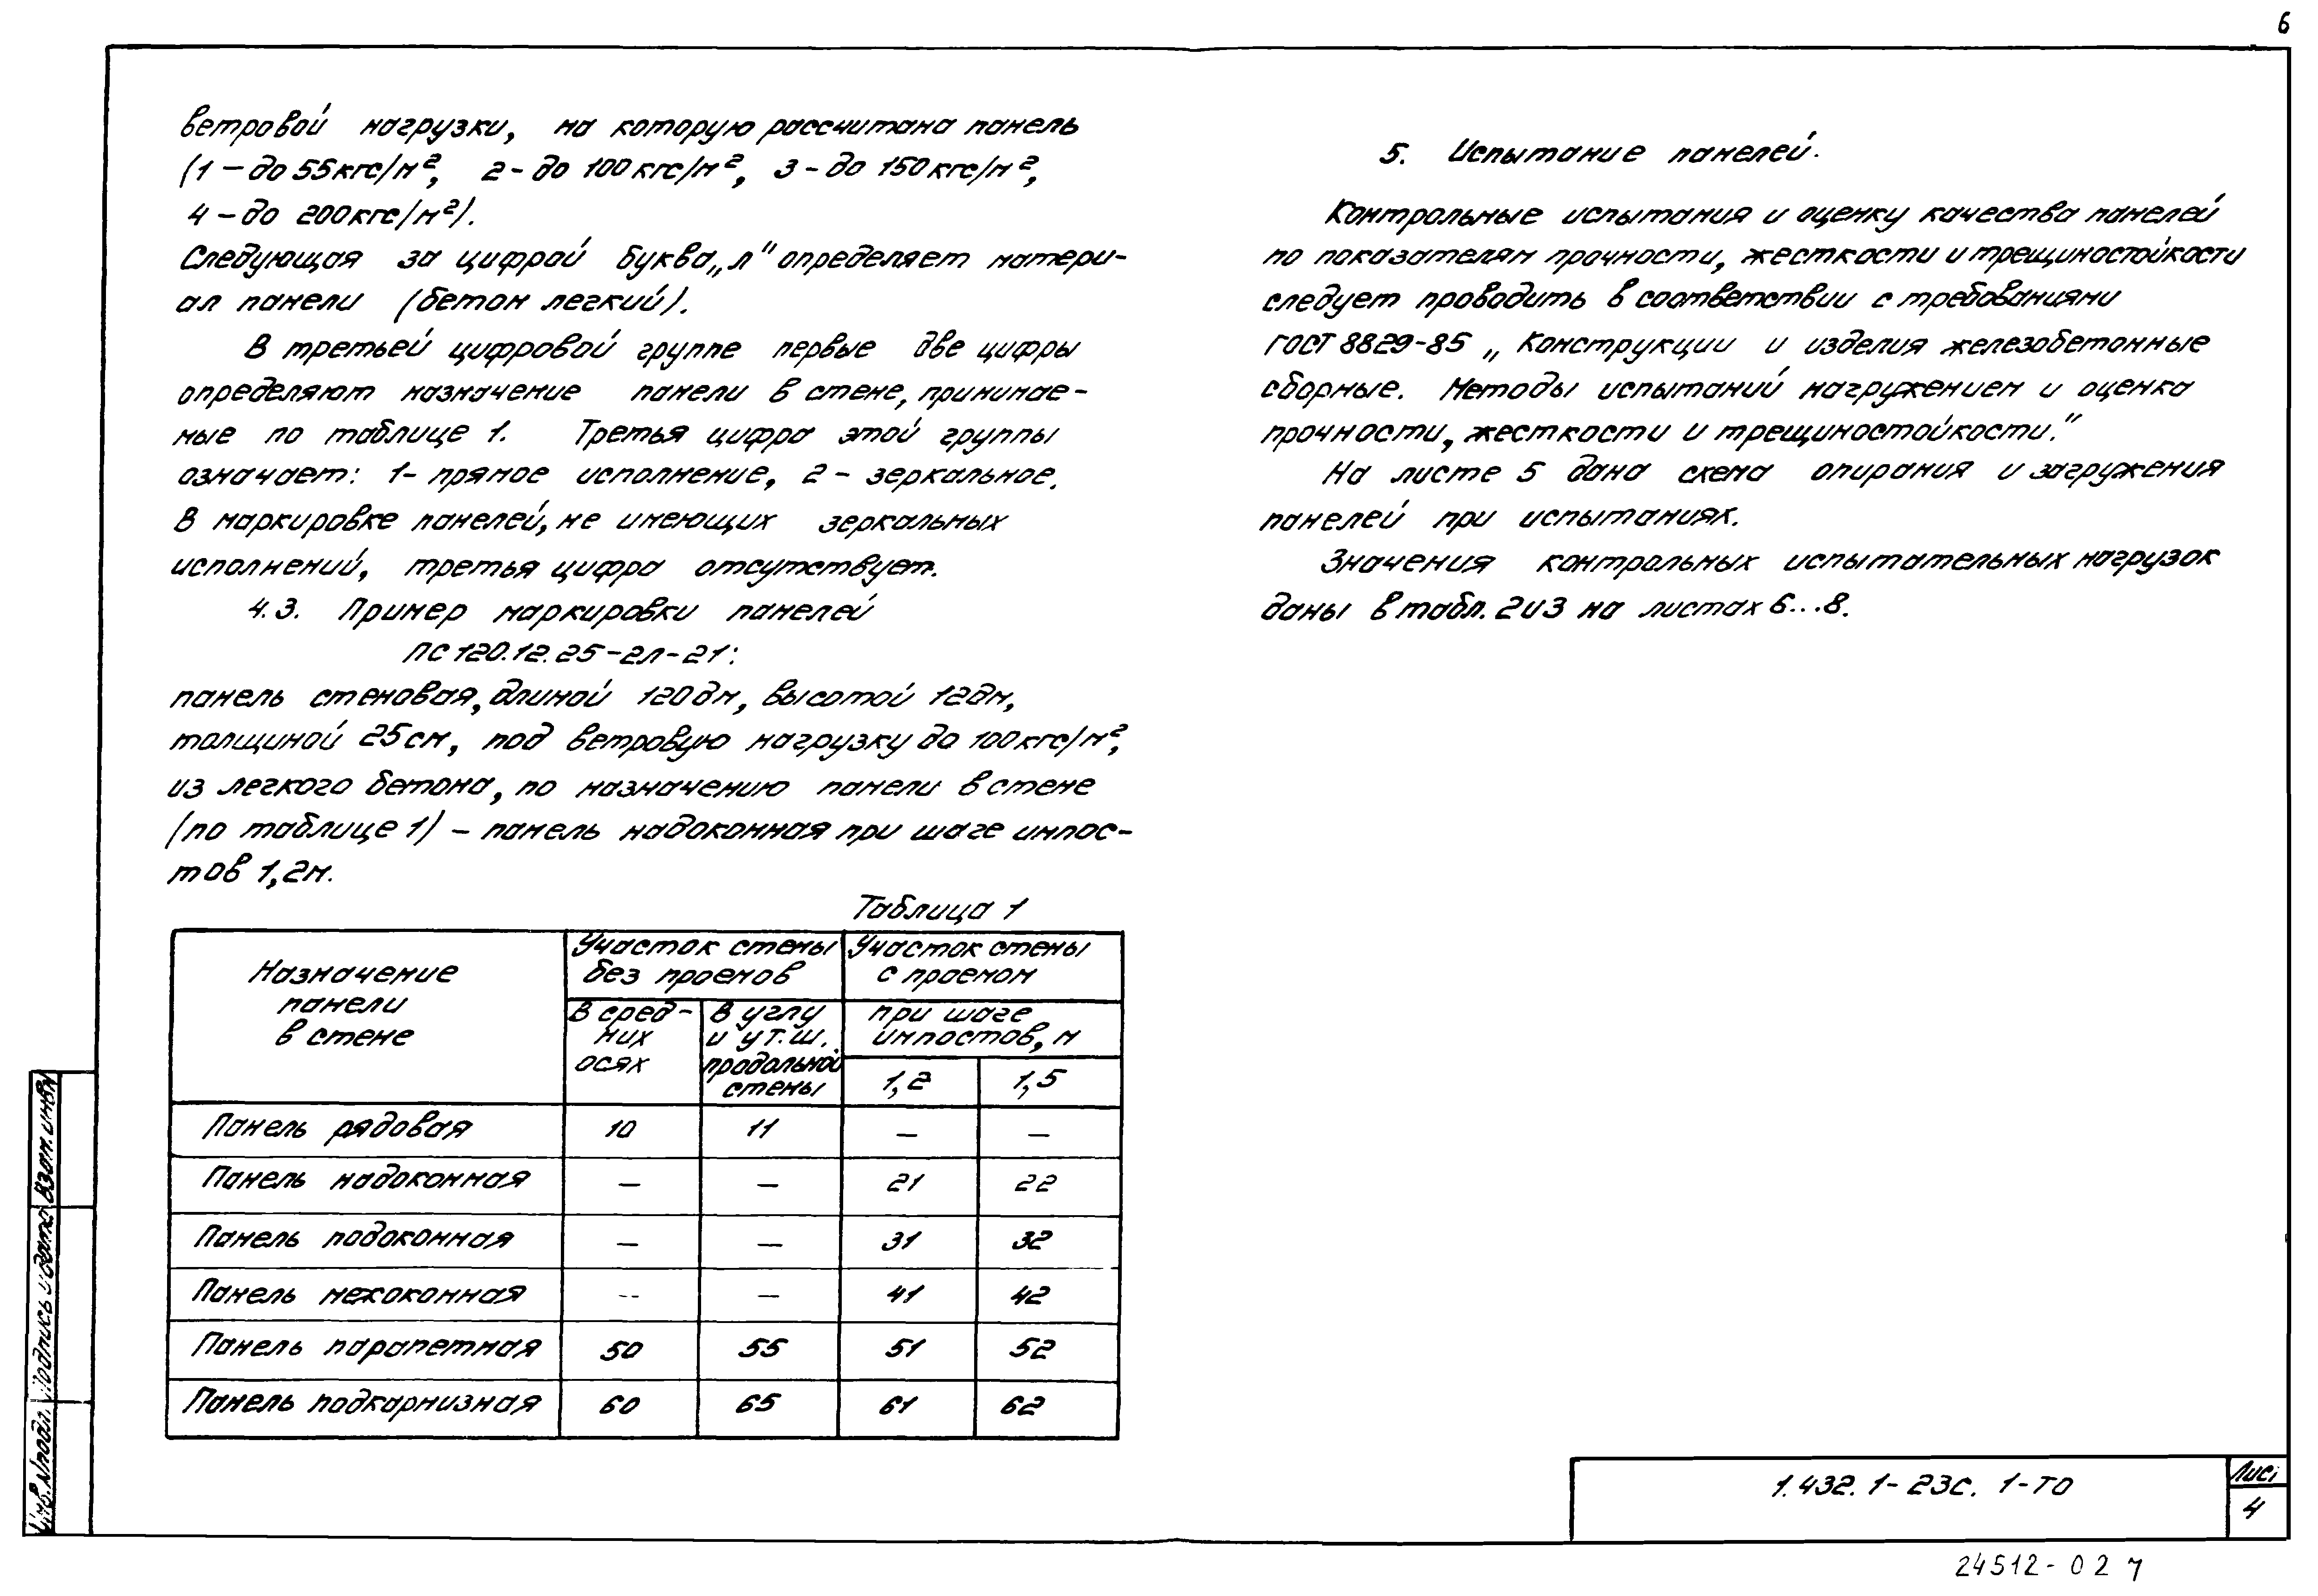 6
ветровой нагрузки, на которую рассчитана панель
(1 – до 55 кгс/м², 2 – до 100 кгс/м², 3 – до 150 кгс/м²,
4 – до 200 кгс/м²).
Следующая за цифрой буква „л" определяет матери-
ал панели (бетон легкий).
В третьей цифровой группе первые две цифры
определяют назначение панели в стене, принимае-
мые по таблице 1. Третья цифра этой группы
означает: 1- прямое исполнение, 2 – зеркальное.
В маркировке панелей, не имеющих зеркальных
исполнений, третья цифра отсутствует.
4.3. Пример маркировки панелей
ПС 120.12.25-2л-21:
панель стеновая, длиной 120 дм, высотой 12 дм,
толщиной 25 см, под ветровую нагрузку до 100 кгс/м²,
из легкого бетона, по назначению панели в стене
(по таблице 1) – панель надоконная при шаге импос-
тов 1,2 м.
Таблица 1
Назначение панели в стене
Участок стены без проемов
Участок стены с проемом
В сред-
них
осях
В углу
и у т.ш.
продольной
стены
при шаге
импостов, м
1,2 1,5
Панель рядовая 10 11 – –
Панель надоконная – – 21 22
Панель подоконная – – 31 32
Панель межоконная – – 41 42
Панель парапетная 50 55 51 52
Панель подкарнизная 60 65 61 62
5. Испытание панелей.
Контрольные испытания и оценку качества панелей
по показателям прочности, жесткости и трещиностойкости
следует проводить в соответствии с требованиями
ГОСТ 8829-85 „Конструкции и изделия железобетонные
сборные. Методы испытаний нагружением и оценка
прочности, жесткости и трещиностойкости."
На листе 5 дана схема опирания и загружения
панелей при испытаниях.
Значения контрольных испытательных нагрузок
даны в табл. 2 и 3 на листах 6...8.
Инв. № подл. Подпись и дата Взам. инв. №
1.432.1-23с. 1-ТО
Лист
4
24512-02 7